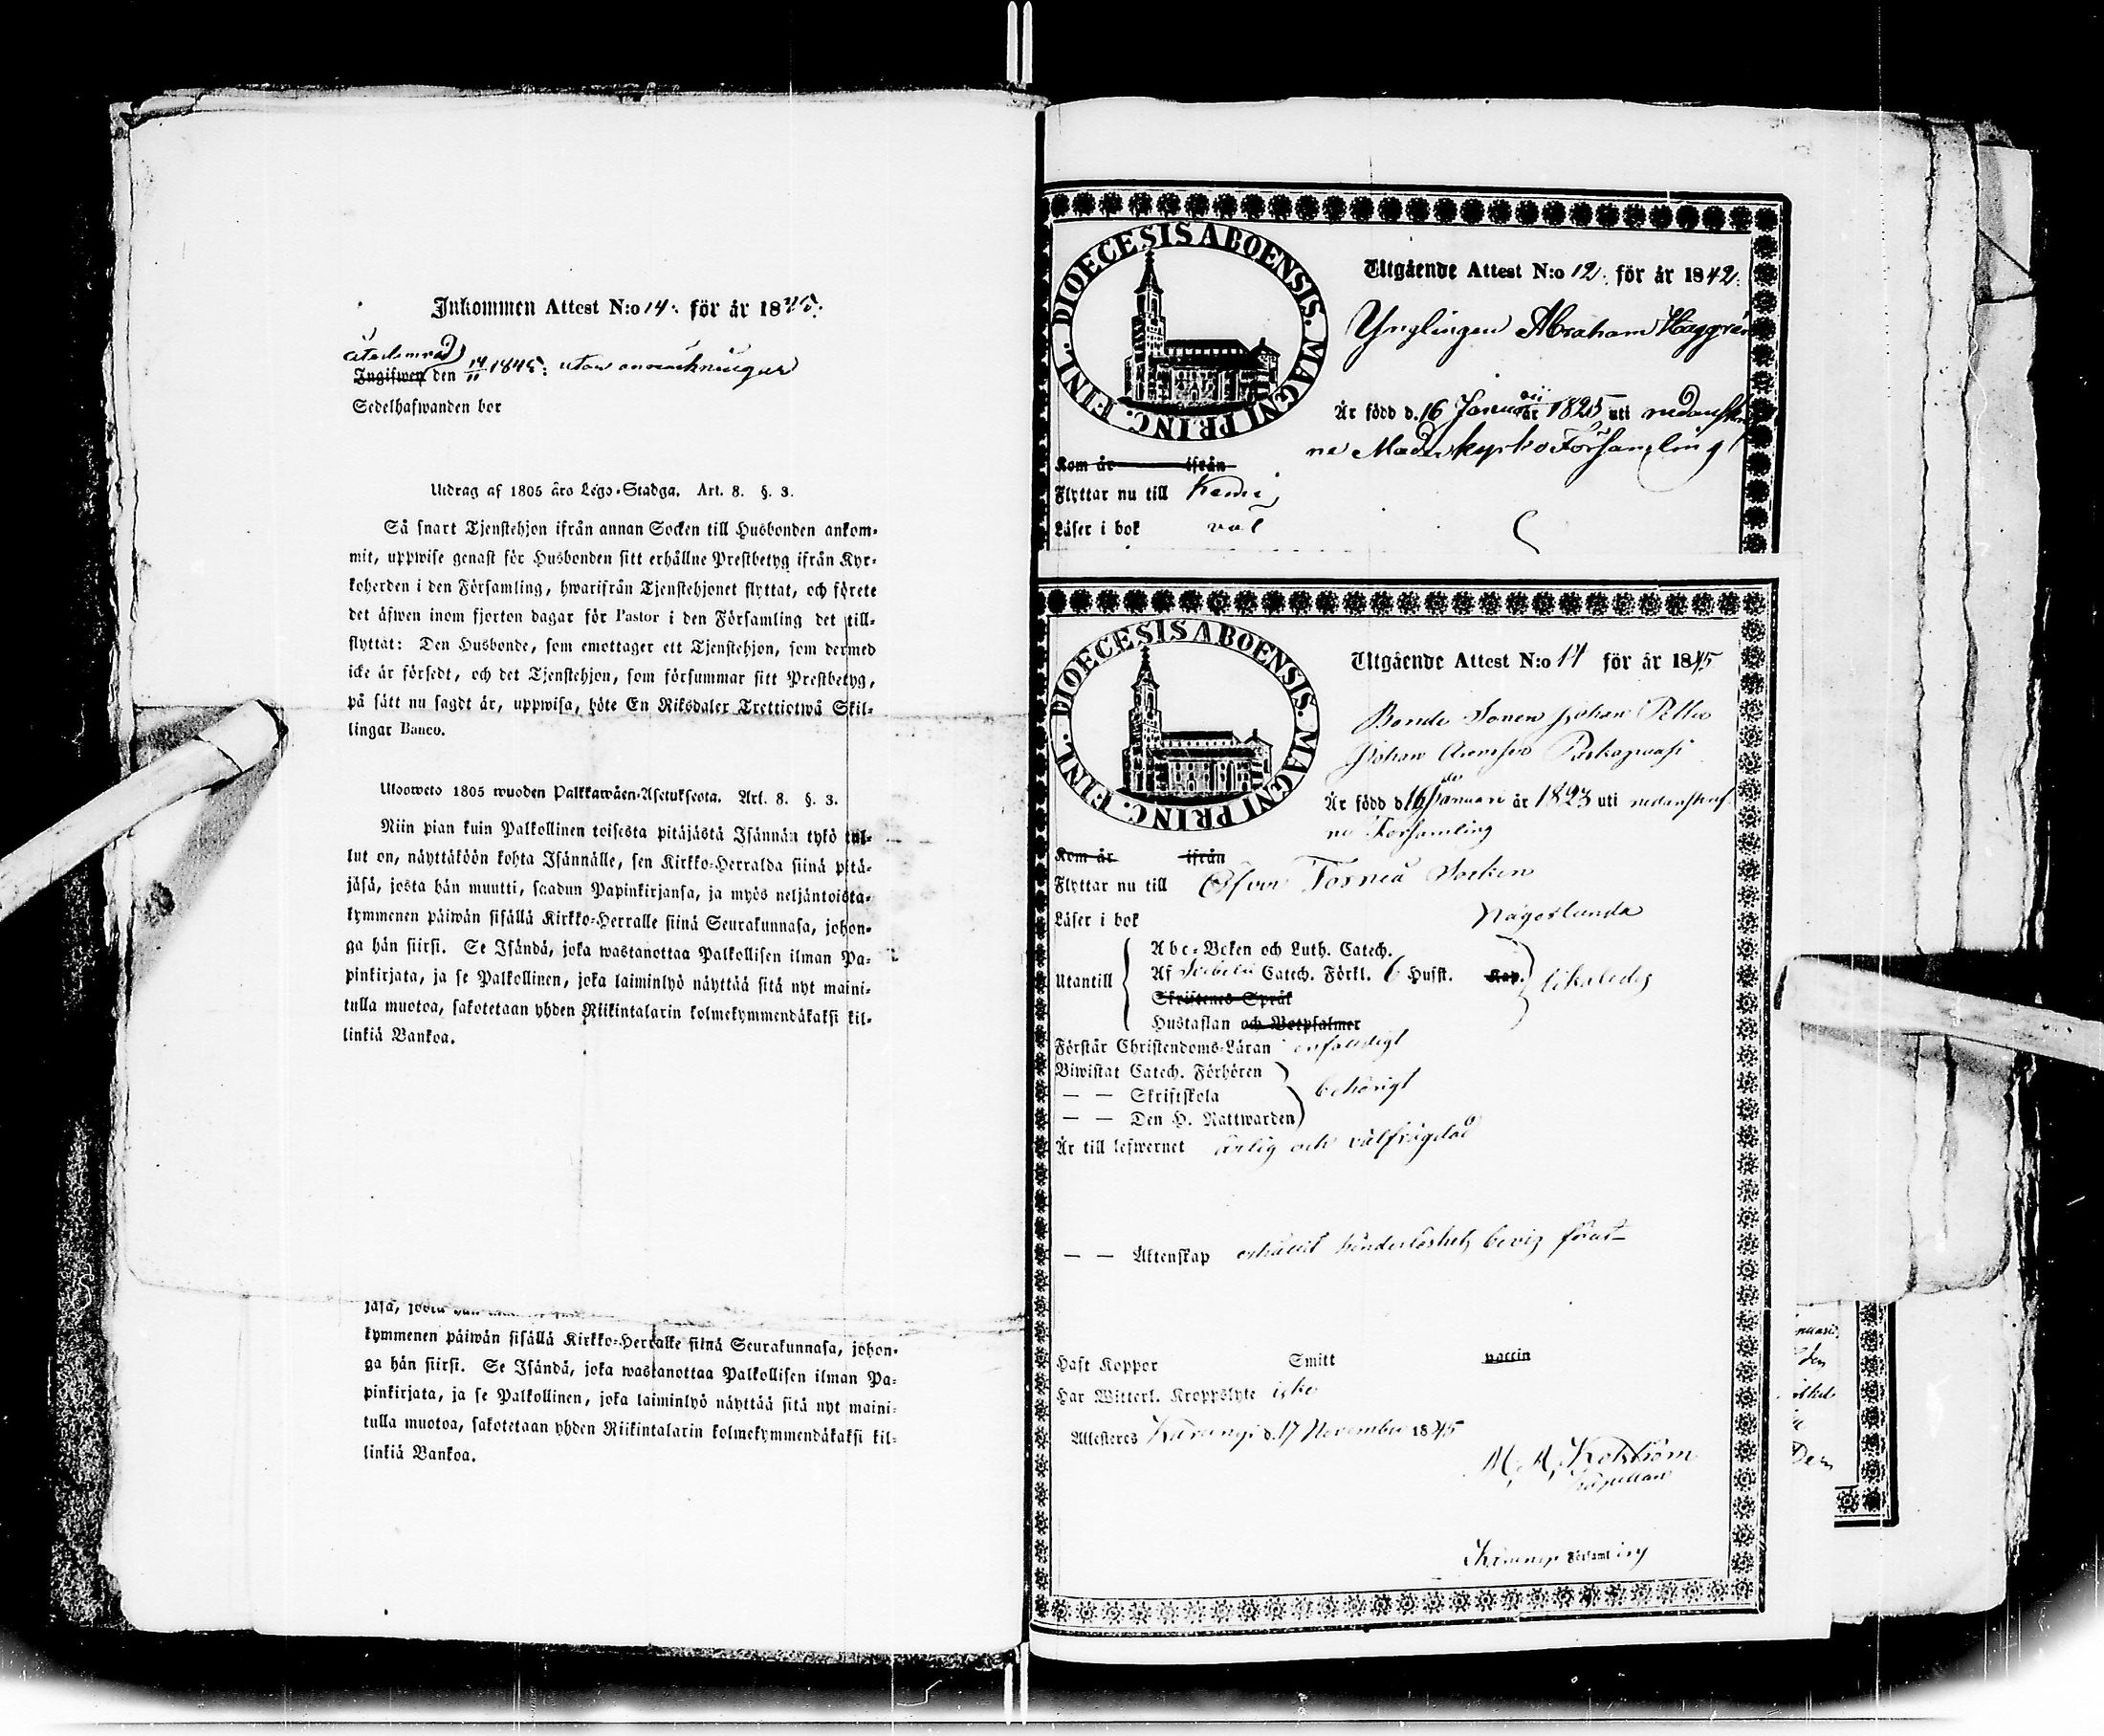 Inkommen Attest N:o 14. för år 1845.
Ingifwen den 14/11 1845: utan anmärkningar
Sedelhafwanden bor
Utdrag af 1805 åro Lego-Stadga. Art. 8. §. 3.
Så snart Tjenstehjon ifrån annan Socken till Husbonden ankom-
mit, uppwise genast för Husbonden sitt erhållne Prestbetyg ifrån Kyr-
koherden i den Församling, hwarifrån Tjenstehjonet flyttat, och förete
det äfwen inom fjorton dagar för Pastor i den Församling det till-
flyttat: Den Husbonde, som emottager ett Tjenstehjon, som dermed
icke är försedt, och det Tjenstehjon, som försummar sitt Prestbetyg,
på sätt nu sagdt är, uppwisa, böte En Riksdaler Trettiotwå Skil-
lingar Banco.
Ulosweto 1805 wuoden Palkkawäen-Asetuksesta. Art. 8. §. 3.
Niin pian kuin Palkollinen toisesta pitäjästä Isännän tykö tul-
lut on, näyttäköön kohta Isännälle, sen Kirkko-Herralda siinä pitä-
jäsä, josta hän muutti, saadun Papinkirjansa, ja myös neljäntoista-
kymmenen päiwän sisällä Kirkko-Herralle siinä Seurakunnasa, johon-
ga hän siirsi. Se Isändä, joka wastanottaa Palkollisen ilman Pa-
pinkirjata, ja se Palkollinen, joka laiminlyö näyttää sitä nyt maini-
tulla muotoa, sakotetaan yhden Riikintalarin kolmekymmendäkaksi kil-
linkiä Bankoa.
jäsä, josta hän
kymmenen päiwän sisällä Kirkko-Herralle siinä Seurakunnasa, johon-
ga hän siirsi. Se Isändä, joka wastanottaa Palkollisen ilman Pa-
pinkirjata, ja se Palkollinen, joka laiminlyö näyttää sitä nyt maini-
tulla muotoa, sakotetaan yhden Riikintalarin kolmekymmendäkaksi kil-
linkiä Bankoa.
DIOECESIS ABOENSIS. MAGNI PRINC. FINL.
Utgående Attest N:o 12. för år 1842.
Ynglingen Abraham Häggrén
Är född d. 16 Januarii år 1825 uti nedanstå
ne Moderkyrko Församling
Kom år ifrån
Flyttar nu till Kemi
Läser i bok väl
DIOECESIS ABOENSIS. MAGNI PRINC. FINL.
Utgående Attest N:o 14 för år 1845
Bonde Sonen Johan Petter
Johan
Är född d 16 Januari år 1823 uti nedanstå
ne Församling
Kom år ifrån
Flyttar nu till Öfver Torneå Socken
Läser i bok någorlunda
Utantill
Abc-Boken och Luth. Catech.
Af Svebelii Catech. Förkl. 6 Hufst. Kap. likaledes
Skriftenes Språk
Hustaflan och Botpsalmer
Förstår Christendoms-Läran enfaldigt
Biwistat Catech. Förhören
— — Skriftskola behörigt
— — Den H. Nattwarden
Är till lefwernet ärlig och välfrägdad
— — Äktenskap erhållit hinderlöshets bevis förut
Haft Koppor Smitt vaccin
Har Witterl. Kroppslyte icke
Attesteres Karungi d. 17 November 1845
Kapellan
Karungi Församling